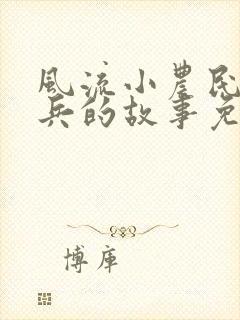 风流小农民
兵的故事免
博库